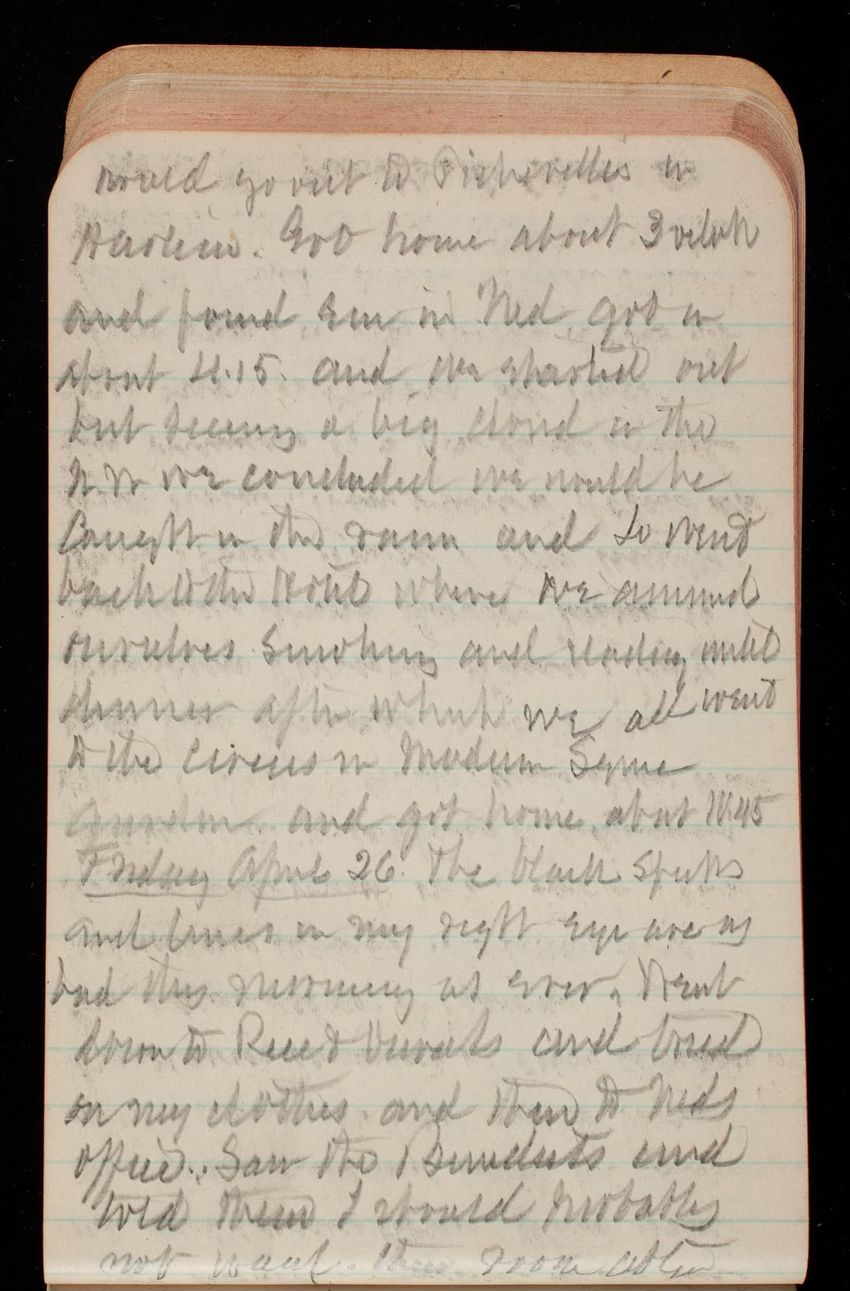 would go out to in
Harlem. Got home about 3 oclock
and found Em in Ned got in
about 4.15. and we started out
but seeing a big cloud in the
N.W we concluded we would be
Caught in the rain and so went
back to the Hotel where we amused
ourselves smoking and reading until
dinner after which we all went
to the Circus in Madison Square
Garden. and got home about
Friday April 26 The black specks
and lines in my right eye are as
bad this morning as ever. Went
down to and tried
on my clothes. and then to Neds
office. Saw the Benedicts and
told them I should probably
not want their room after